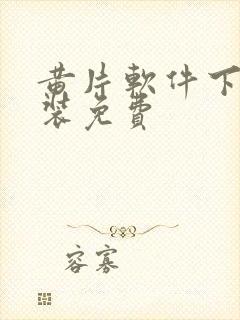 黄片軟件下
裝免費
容寡